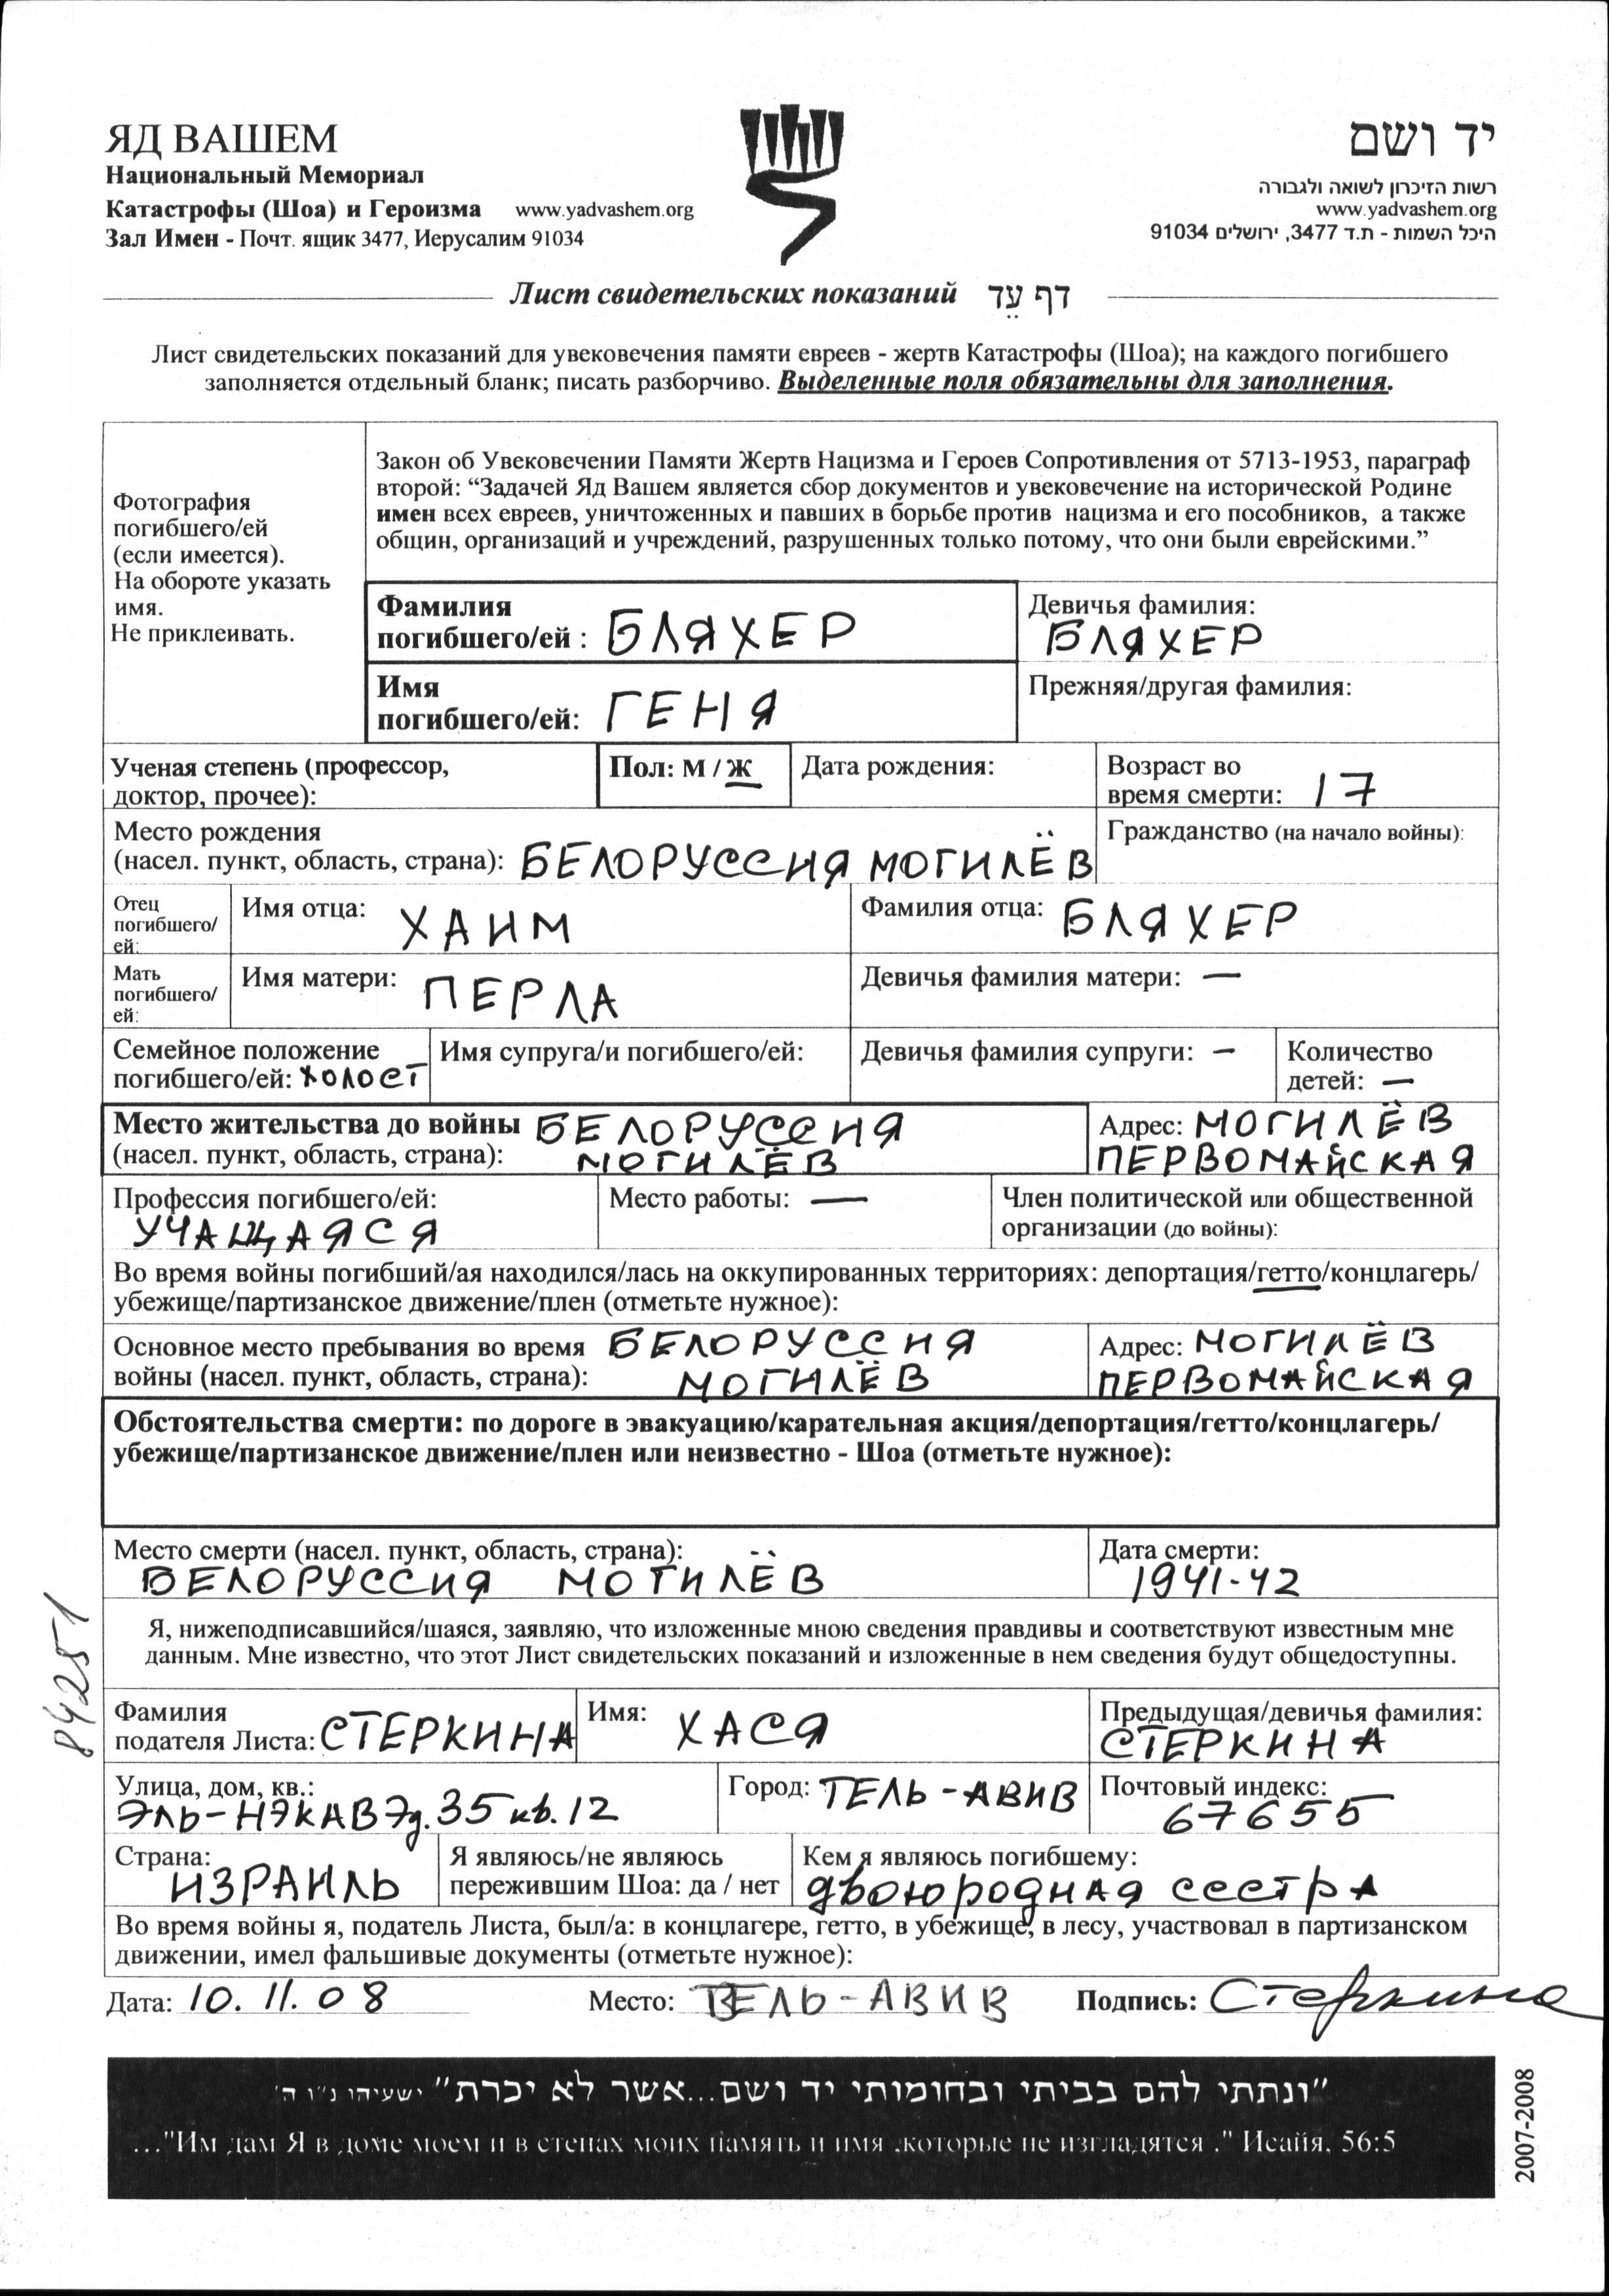 ЯД ВАШЕМ
Национальный Мемориал
Катастрофы (Шоа) и Героизма www.yadvashem.org
Зал Имен - Почт. ящик 3477, Иерусалим 91034
יד ושם
רשות הזיכרון לשואה ולגבורה
www.yadvashem.org
היכל השמות - ת.ד 3477, ירושלים 91034
Лист свидетельских показаний דף עֵד
Лист свидетельских показаний для увековечения памяти евреев - жертв Катастрофы (Шоа); на каждого погибшего
заполняется отдельный бланк; писать разборчиво. Выделенные поля обязательны для заполнения.
Фотография
погибшего/ей
(если имеется).
На обороте указать
имя.
Не приклеивать.
Закон об Увековечении Памяти Жертв Нацизма и Героев Сопротивления от 5713-1953, параграф
второй: “Задачей Яд Вашем является сбор документов и увековечение на исторической Родине
имен всех евреев, уничтоженных и павших в борьбе против нацизма и его пособников, а также
общин, организаций и учреждений, разрушенных только потому, что они были еврейскими.”
Фамилия
погибшего/ей : БЛЯХЕР
Девичья фамилия:
БЛЯХЕР
Имя
погибшего/ей: ГЕНЯ
Прежняя/другая фамилия:
Ученая степень (профессор,
доктор, прочее):
Пол: М / Ж
Дата рождения:
Возраст во
время смерти: 17
Место рождения
(насел. пункт, область, страна): БЕЛОРУССИЯ МОГИЛЁВ
Гражданство (на начало войны):
Отец
погибшего/
ей:
Имя отца: ХАИМ
Фамилия отца: БЛЯХЕР
Мать
погибшего/
ей:
Имя матери: ПЕРЛА
Девичья фамилия матери: —
Семейное положение
погибшего/ей: холост
Имя супруга/и погибшего/ей:
Девичья фамилия супруги: –
Количество
детей: —
Место жительства до войны БЕЛОРУССИЯ
(насел. пункт, область, страна): МОГИЛЁВ
Адрес: МОГИЛЁВ
ПЕРВОМАЙСКАЯ
Профессия погибшего/ей:
УЧАЩАЯСЯ
Место работы: —
Член политической или общественной
организации (до войны):
Во время войны погибший/ая находился/лась на оккупированных территориях: депортация/гетто/концлагерь/
убежище/партизанское движение/плен (отметьте нужное):
Основное место пребывания во время БЕЛОРУССИЯ
войны (насел. пункт, область, страна): МОГИЛЁВ
Адрес: МОГИЛЁВ
ПЕРВОМАЙСКАЯ
Обстоятельства смерти: по дороге в эвакуацию/карательная акция/депортация/гетто/концлагерь/
убежище/партизанское движение/плен или неизвестно - Шоа (отметьте нужное):
Место смерти (насел. пункт, область, страна):
БЕЛОРУССИЯ МОГИЛЁВ
Дата смерти:
1941-42
Я, нижеподписавшийся/шаяся, заявляю, что изложенные мною сведения правдивы и соответствуют известным мне
данным. Мне известно, что этот Лист свидетельских показаний и изложенные в нем сведения будут общедоступны.
84251
Фамилия
подателя Листа: СТЕРКИНА
Имя: ХАСЯ
Предыдущая/девичья фамилия:
СТЕРКИНА
Улица, дом, кв.:
ЭЛЬ-НЭКАВЭ д.35 кв.12
Город: ТЕЛЬ-АВИВ
Почтовый индекс:
67655
Страна:
ИЗРАИЛЬ
Я являюсь/не являюсь
пережившим Шоа: да / нет
Кем я являюсь погибшему:
двоюродная сестра
Во время войны я, податель Листа, был/а: в концлагере, гетто, в убежище, в лесу, участвовал в партизанском
движении, имел фальшивые документы (отметьте нужное):
Дата: 10.11.08 Место: ТЕЛЬ-АВИВ Подпись: Стеркина
"ונתתי להם בביתי ובחומותי יד ושם...אשר לא יכרת" ישעיהו נ"ו ה'
..."Им дам Я в доме моем и в стенах моих память и имя ,которые не изгладятся ." Исайя, 56:5
2007-2008